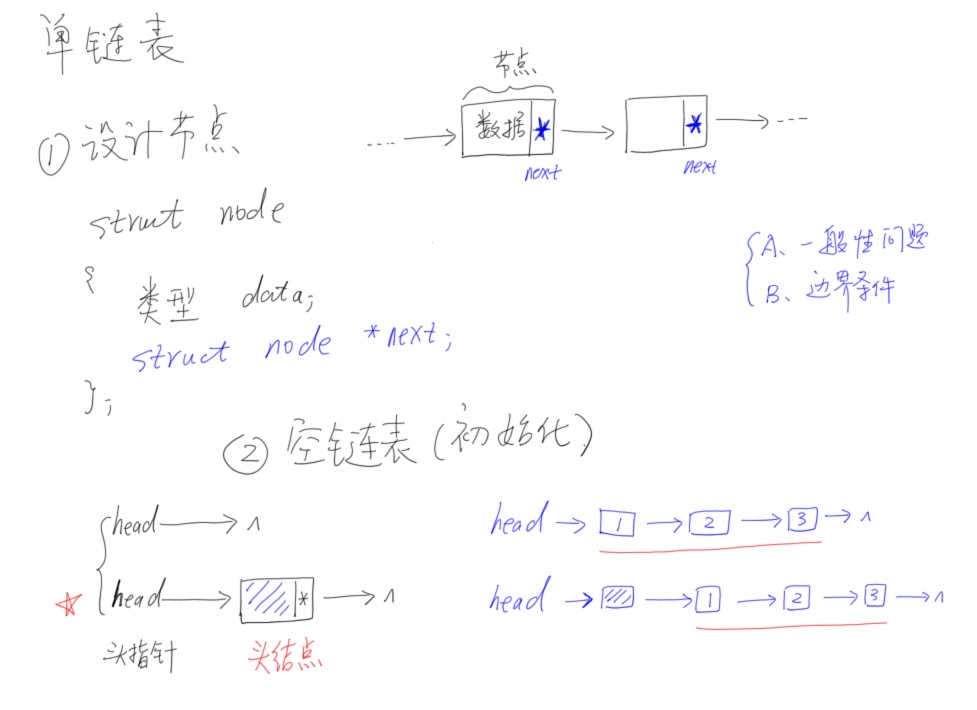 单链表
节点
① 设计节点
数据 *
*
next
next
struct node
{
类型 data;
struct node *next;
};
A、一般性问题
B、边界条件
② 空链表(初始化)
head → ∧
head → 1 → 2 → 3 → ∧
head → * → ∧
head → → 1 → 2 → 3 → ∧
头指针
头结点